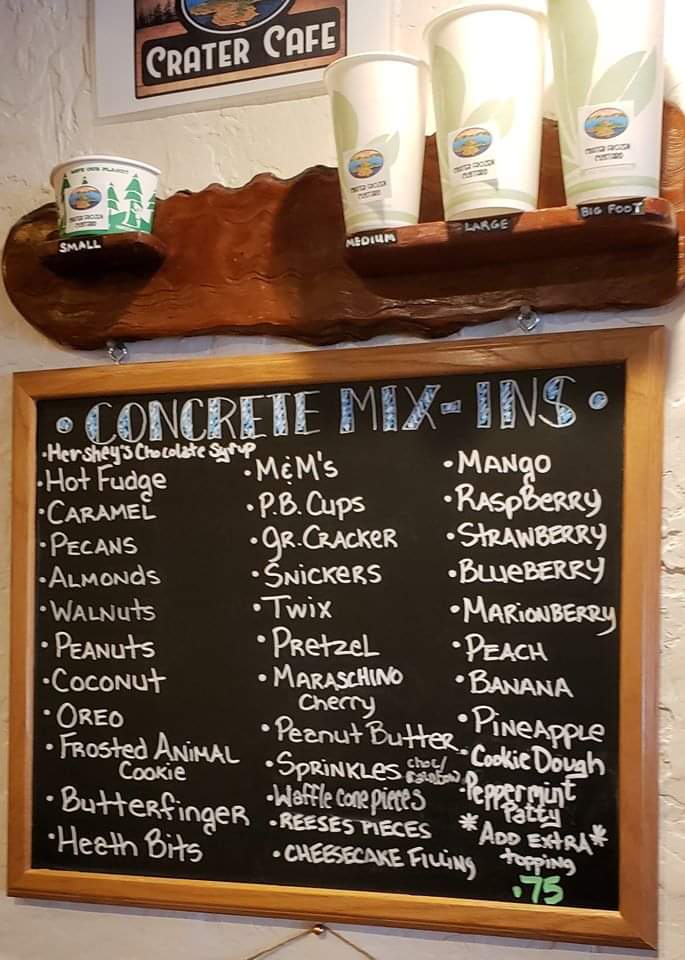 CRATER CAFE
SAVE OUR PLANET
CRATER FROZEN
CUSTARD
CRATER FROZEN
CUSTARD
CRATER FROZEN
CUSTARD
CRATER FROZEN
CUSTARD
SMALL
MEDIUM
LARGE
BIG FOOT
• CONCRETE MIX-INS •
• Hershey's Chocolate Syrup
• Hot Fudge
• CARAMEL
• PECANS
• ALMONDS
• WALNUTS
• PEANUTS
• COCONUT
• OREO
• FROSTED ANIMAL
Cookie
• Butterfinger
• Heath Bits
• M&M's
• P.B. Cups
• GR. CRACKER
• SNICKERS
• Twix
• PRETZEL
• MARASCHINO
Cherry
• Peanut Butter
• SPRINKLES choc/
rainbow
• Waffle cone pieces
• REESES PIECES
• CHEESECAKE FILLING
• MANGO
• RASPBERRY
• STRAWBERRY
• BLUEBERRY
• MARIONBERRY
• PEACH
• BANANA
• PINEAPPLE
• Cookie Dough
• Peppermint
Patty
*ADD EXTRA*
topping
.75